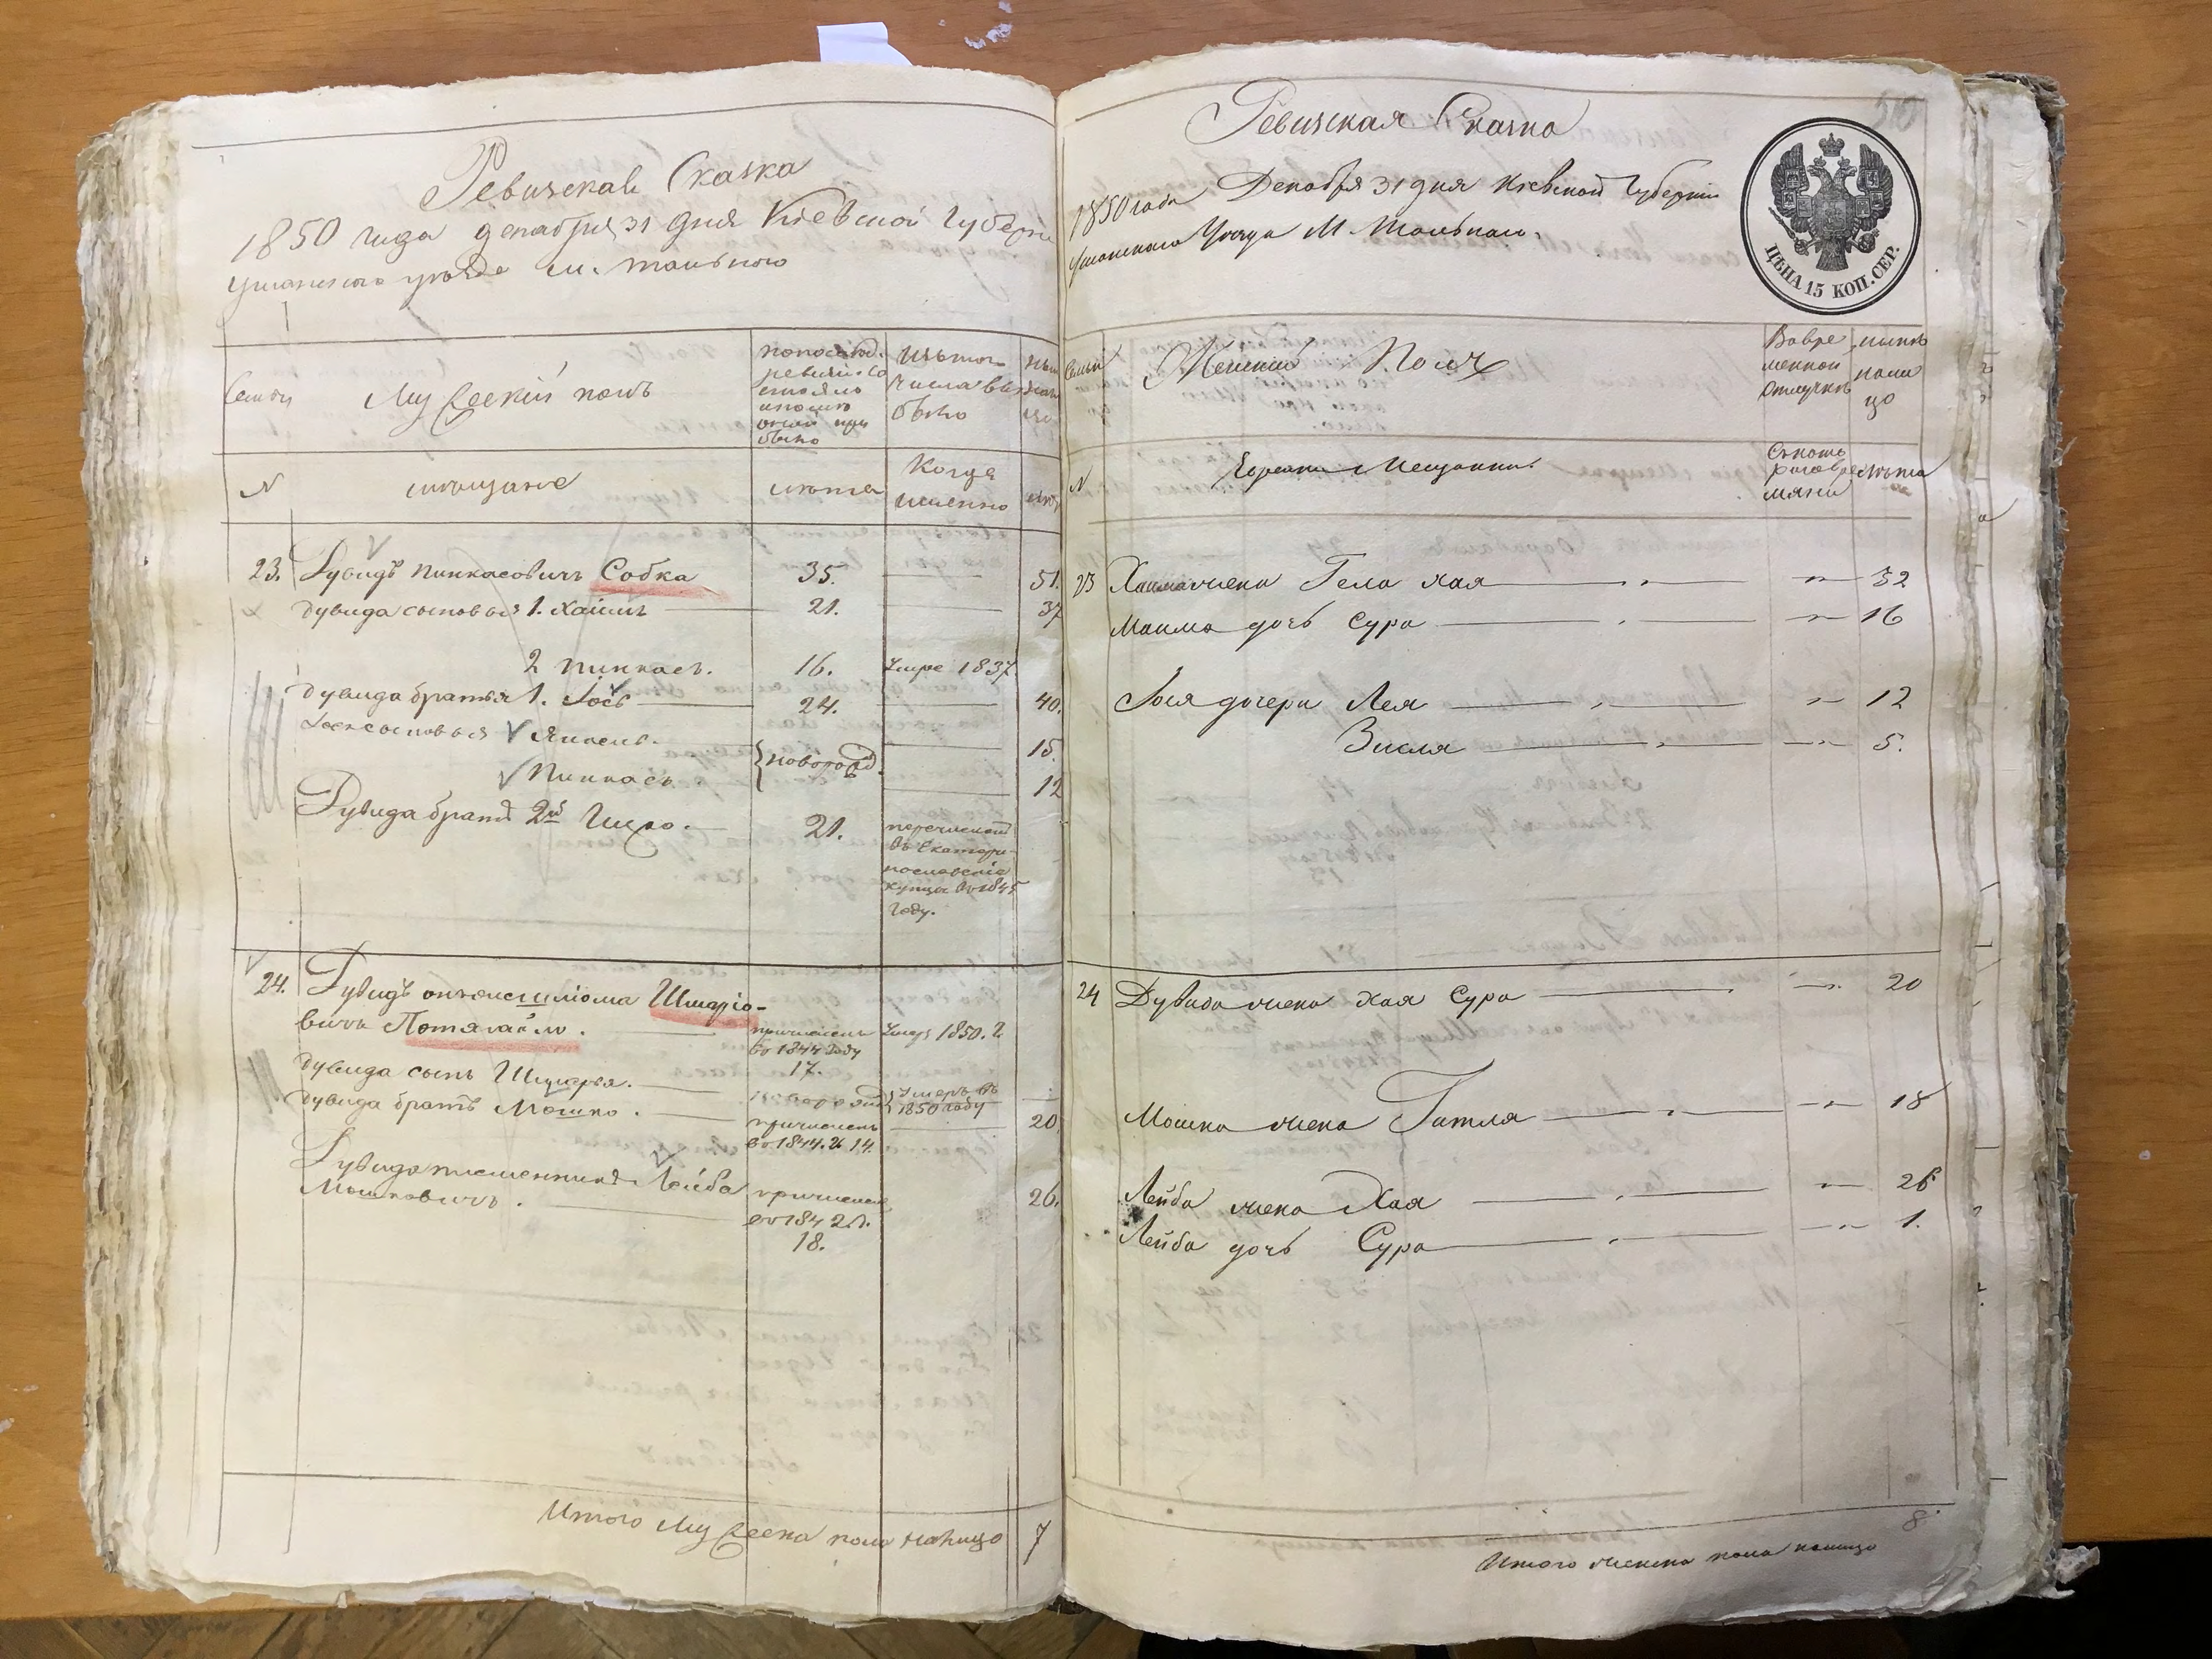 Ревизская Сказка
1850 года декабря 31 дня Кіевской Губерни
уманского уѣзда м. тального
Семьи
Мужескій полъ
ревизіи со
стояло
было
Изъ того
числа вы
было
N
мещане
лѣта
Когда
именно
23. Дувидъ Пинкасовичъ Собка 35. 51.
дувида сыновья 1. Хаимъ 21. 37
2 Пинкасъ. 16. Умре 1837
дувида братья 1. Іось 24. 40.
сыновья Янкель. 15.
новорожд.
Пинкасъ. 12
Дувида братъ 2й 21.
перечисленъ
въ Екатери-
нославскіе
купцы въ 1845
году.
24. Дувидъ Шмаріо-
вичъ Потягайло.
причисленъ
во 1844 году
17.
Умеръ 1850. г.
дувида сынъ Шмарья.
Умеръ въ
1850 году
дувида братъ Мошко.
причисленъ
во 1844. и 14.
20
Дувида племенникъ Лейба
Мошковичъ.
причисленъ
во 1842 г.
18.
26.
Итого Мужеска пола налицо 7
Ревизская Сказка
1850 года Декабря 31 дня Кіевской Губерніи
Уманского Уѣзда М. Тального.
ЦѢНА 15 КОП. СЕР.
Семьи
Женскій Полъ
Вовре
менной
отлучкѣ
нали
цо
N
Евреи Мещанки.
Съкото
раго вре
мяни
Лѣта
23 Хаима жена Гела хая 32
Хаима дочь Сура 16
Іося дочери Лея 12
Зисля 5.
24 Дувида жена Хая Сура 20
Мошка жена Гитля 18
Лейба жена Хая 26
Лейба дочь Сура 1.
8
Итого женска пола налицо